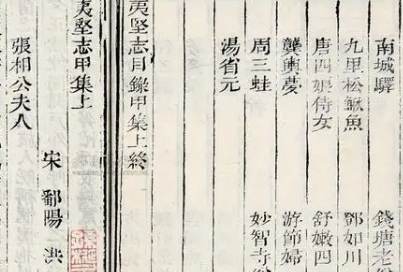 南城驛　錢塘老
九里松鰍魚　鄧如川
唐四娘侍女　舒嫩四
龔輿夢　游節婦
周三蛙　妙智寺
湯省元
夷堅志目錄甲集上終
夷堅志甲集上
宋鄱陽洪
張相公夫人